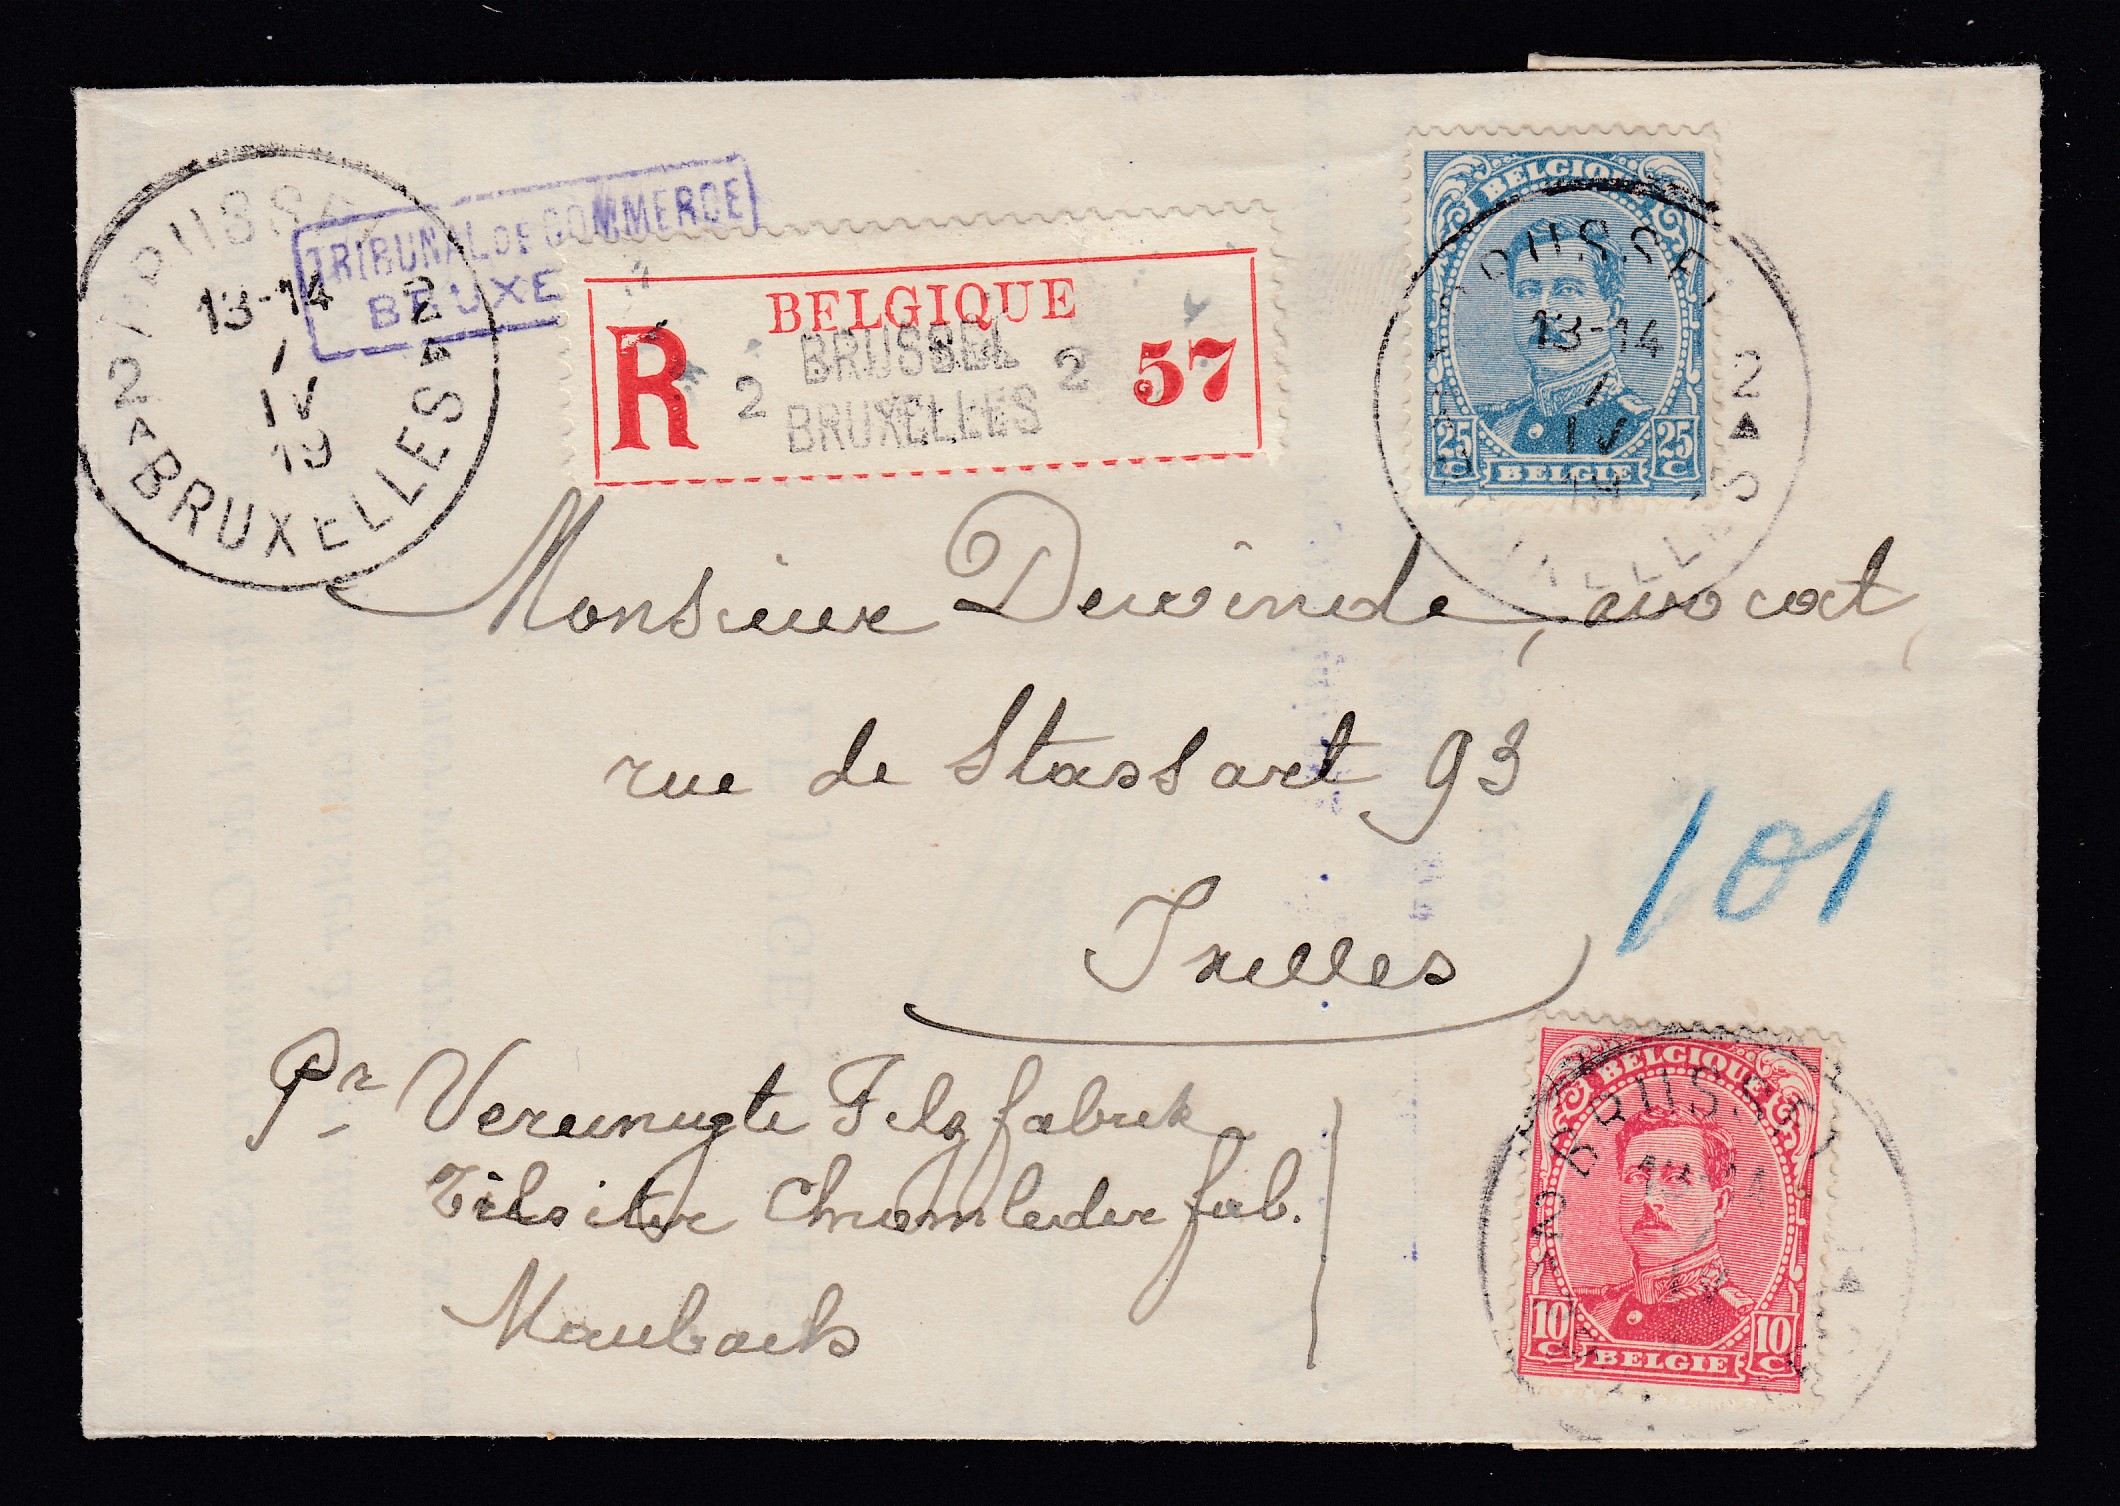 BRUSSEL 2
13-14
1
IV
19
2 BRUXELLES 2
TRIBUNAL DE COMMERCE
BRUXE
BELGIQUE
R 2 BRUSSEL 2 57
BRUXELLES
BELGIQUE
25 C 25 C
BELGIE
13-14
1
IV
19
2
Monsieur Dewinde, avocat,
rue de Stassart 93
Ixelles
101
Pr Vereinugte Filzfabrek
Tilsiter Chromlederfab.
Maubach
BELGIQUE
BRUSSEL
13-14
IV
10 C 10 C
BELGIE